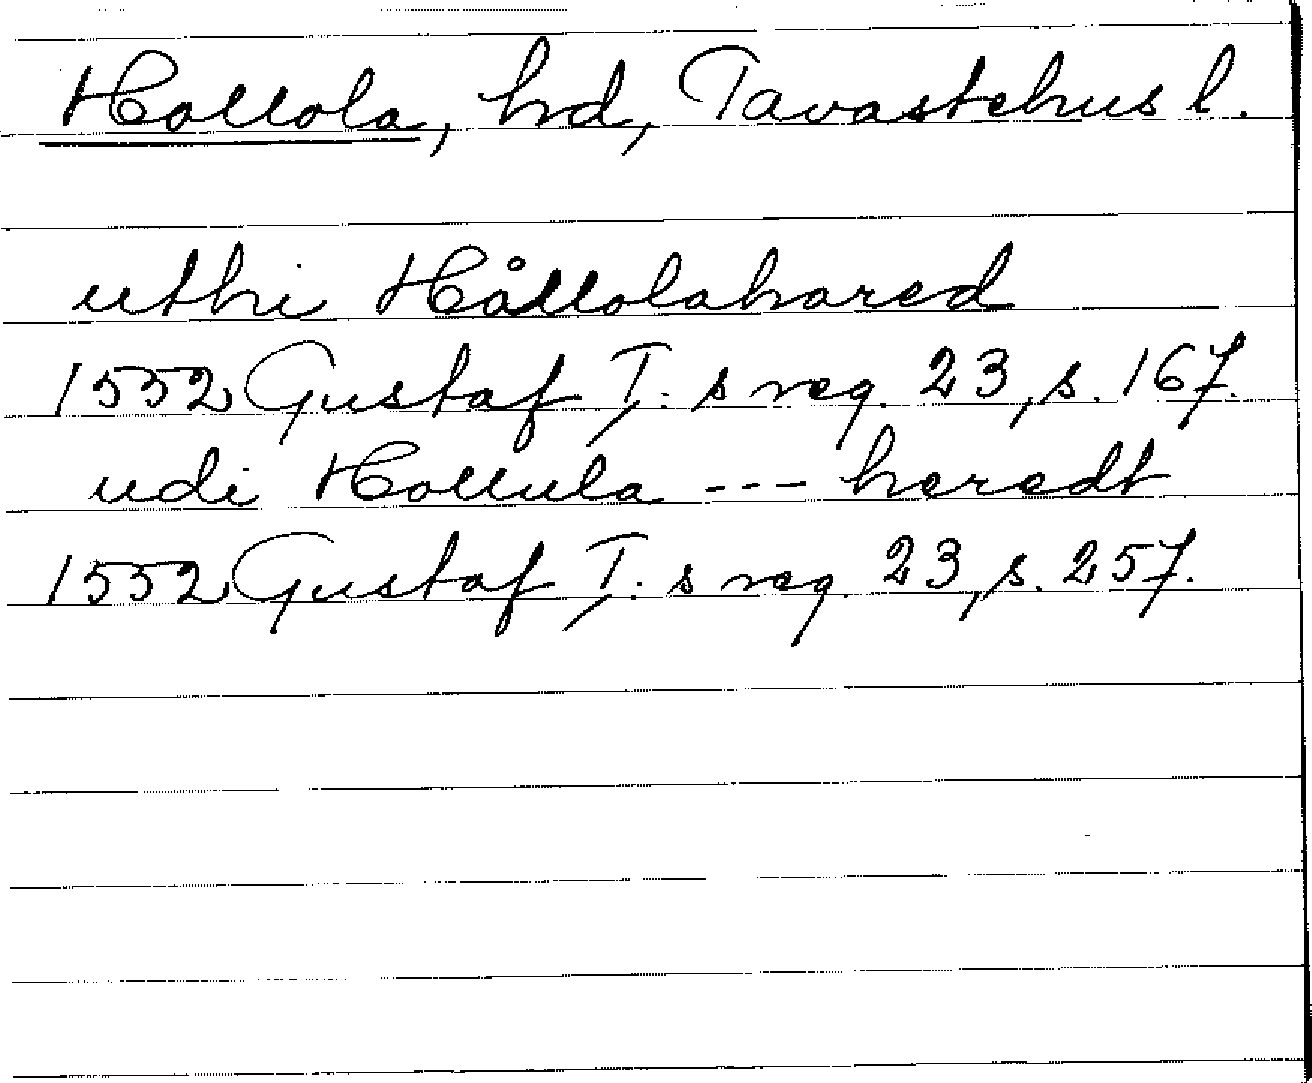 Hollola, hd, Tavastehus l.
uthi Hållolahared
1552 Gustaf I:s reg. 23, s. 167.
udi Hollula --- heredt
1552 Gustaf I:s reg. 23, s. 257.